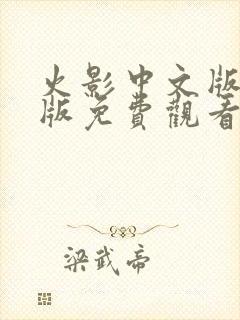 火影中文版
版免費觀看
梁武帝